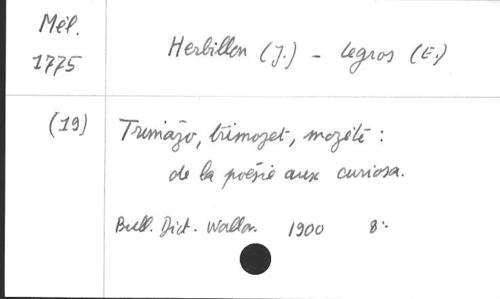 Mél.
1775
Herbillon (J.) - Legros (E.)
(19)
Trimâzo, trimozet, mozèté :
de la poésie aux curiosa.
Bull. Dict. Wallon. 1900 8°